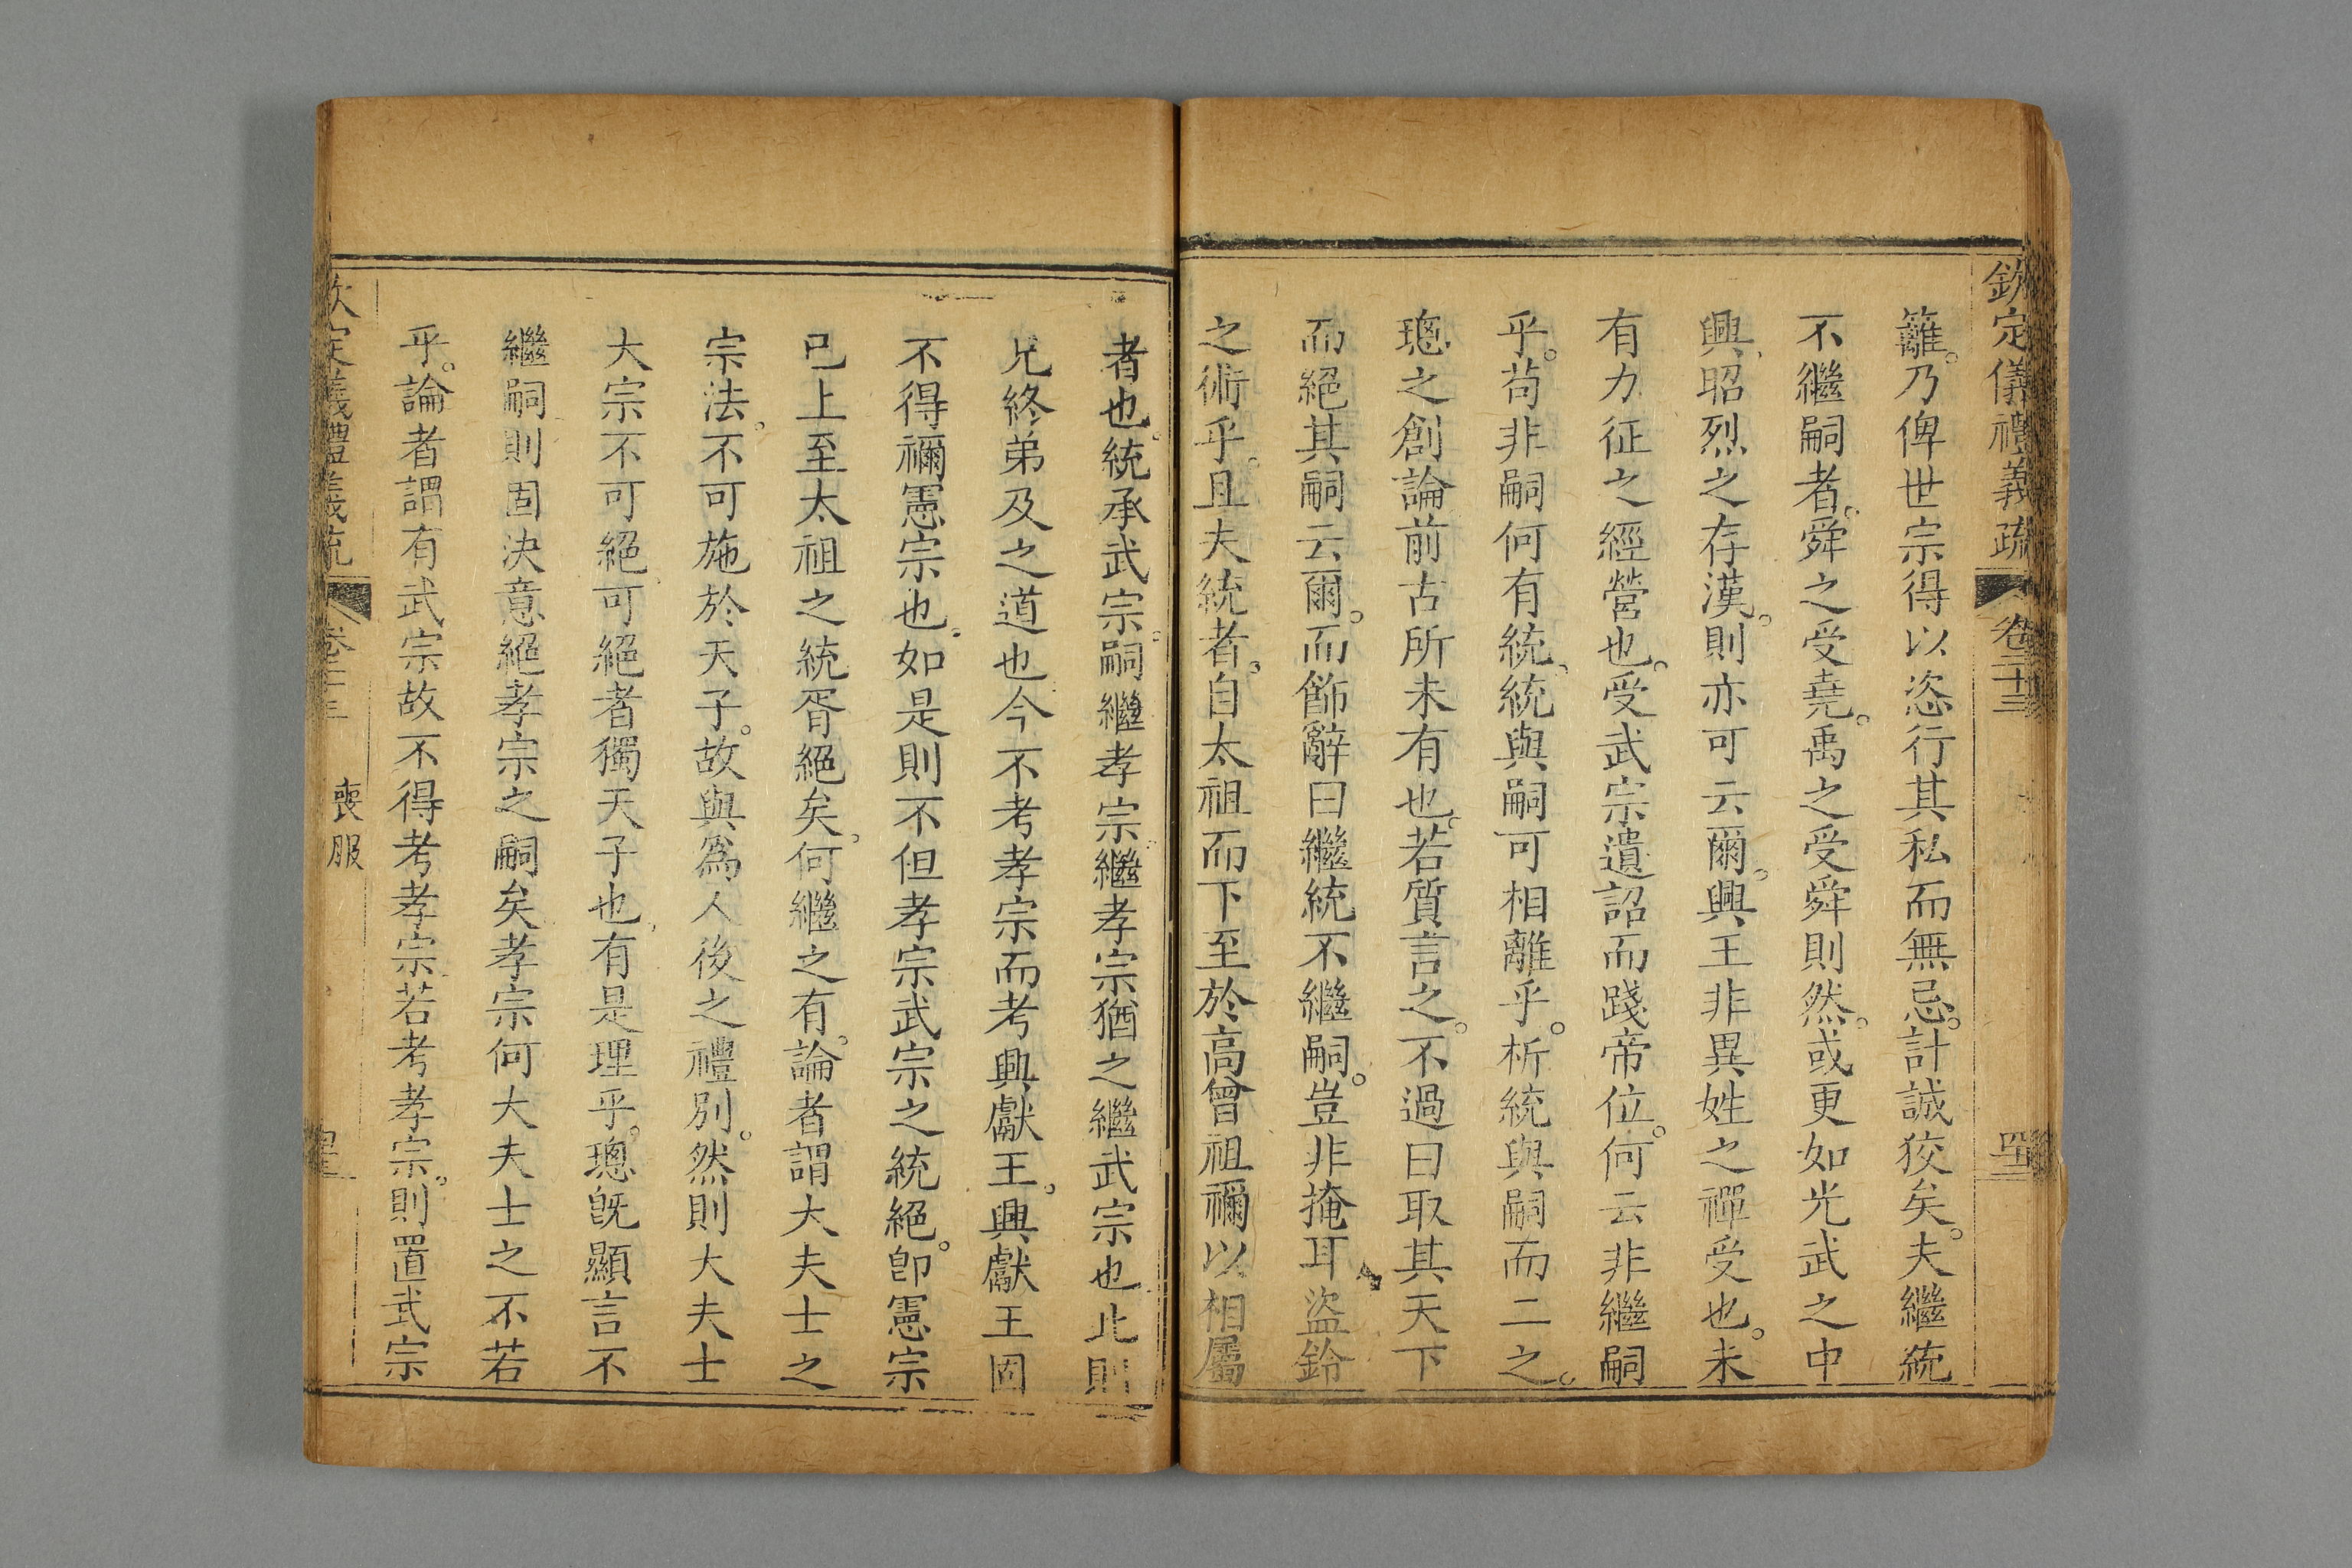 欽定儀禮義疏 卷二十三
籬。乃俾世宗得以恣行其私而無忌。計誠狡矣。夫繼統
不繼嗣者。舜之受堯。禹之受舜則然。或更如光武之中
興、昭烈之存漢。則亦可云爾。興王非異姓之禪受也。未
有力征之經營也。受武宗遺詔而踐帝位。何云非繼嗣
乎。苟非嗣何有統、統與嗣可相離乎。析統與嗣而二之。
璁之創論前古所未有也。若質言之。不過曰取其天下
而絕其嗣云爾。而飾辭曰繼統不繼嗣。豈非掩耳盜鈴
之術乎。且夫統者。自太祖而下至於高曾祖禰以相屬
者也。統承武宗。嗣繼孝宗。繼孝宗猶之繼武宗也此則
兄終弟及之道也。今不考孝宗而考興獻王。興獻王固
不得禰憲宗也。如是則不但孝宗武宗之統絕。卽憲宗
已上至太祖之統胥絕矣。何繼之有。論者謂大夫士之
宗法。不可施於天子。故與爲人後之禮別。然則大夫士
大宗不可絕。可絕者獨天子也、有是理乎。璁旣顯言不
繼嗣則固決意絕孝宗之嗣矣。孝宗何大夫士之不若
乎。論者謂有武宗故不得考孝宗。若考孝宗。則置武宗
喪服